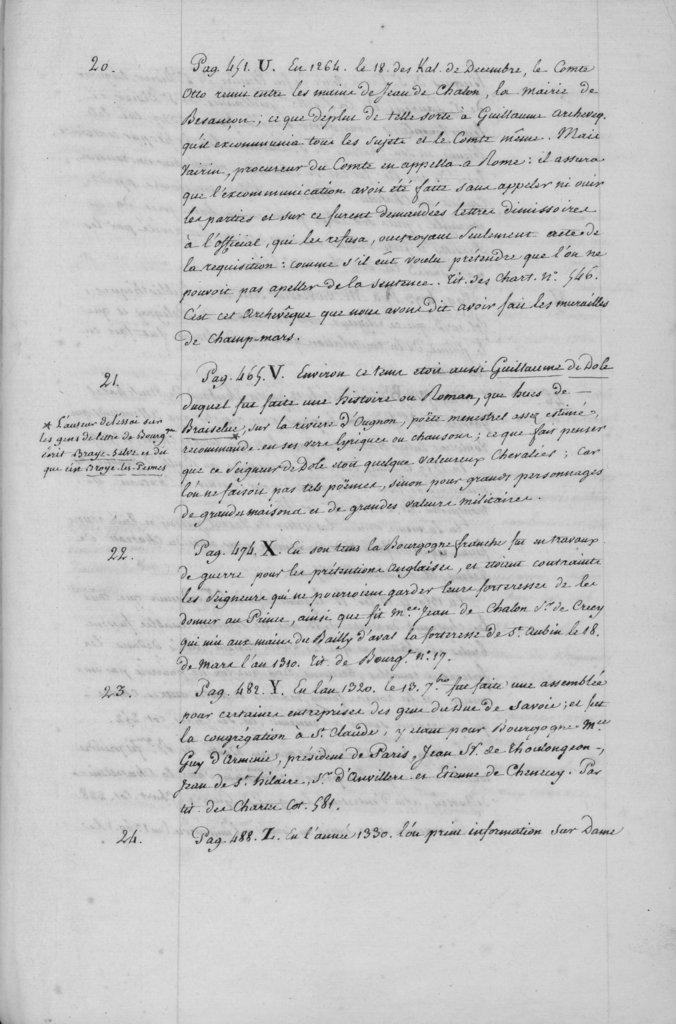 20.
Pag. 451. U. En 1264. le 18. des Kal. de Decembre, le Comte
Otto remit entre les mains de Jean de Chalon, la mairie de
Besançon ; ce que déplut de telle sorte à Guillaume Archeveq.
qu'il excommunia tous les sujets et le Comte même. Mais
Vairin, procureur du Comte en appella à Rome : il assura
que l'excommunication avoit été faite sans appeler ni ouir
les parties et sur ce furent demandées lettres dimissoires
à l'official, qui les refusa, ouctroyant seulement acte de
la requisition : comme s'il eût voulu prétendre que l'on ne
pouvoit pas apeller de la sentence. Tit. des Chart. n°. 546.
C'est cet Archevêque que nous avons dit avoir fait les murailles
de Champ-mars.
21.
Pag. 465. V. Environ ce tems etoit aussi Guillaume de Dole
duquel fut faite une histoire ou Roman, que hues de
Braiselve*, sur la rivière d'Ougnon, poëte menestret assez estimé,
recommande en ses vers lyriques ou chansons ; ce que fait penser
que ce Seigneur de Dole etoit quelque valeureux Chevalier ; car
l'on ne faisoit pas tels poëmes, sinon pour grands personnages
de grandes maisons et de grandes valeurs militaires.
* L'auteur de l'essai sur
les gens de lettre de Bourg.ne
écrit Braye-Selve et du
que c'est Broye-les-Pesmes
22.
Pag. 474. X. En son tems la Bourgogne franche fut en travaux
de guerre pour les prétentions anglaises, et étoient contraints
les Seigneurs qui ne pourroient garder leurs forteresses de les
donner au Prince, ainsi que fit m.re Jean de Chalon S.r de Crecy
qui mit aux mains du Bailly d'aval la forteresse de St. Aubin le 18.
de Mars l'an 1310. Tit de Bourg.e n°. 17.
23.
Pag. 482. Y. En l'an 1320. le 13. 7.bre fut faite une assemblée
pour certaines entreprises des gens du Duc de Savoie ; et fut
la congrégation à St. Claude ; y etant pour Bourgogne M.re
Guy d'Armenie, président de Paris, Jean S.r de Thoulongeon,
Jean de St. hilaire, S.r d'Auvillers et Etienne de Chenecey. Par
tit. des Chartes Cot. 581.
24.
Pag. 488. Z. En l'année 1330. l'on print information sur Dame